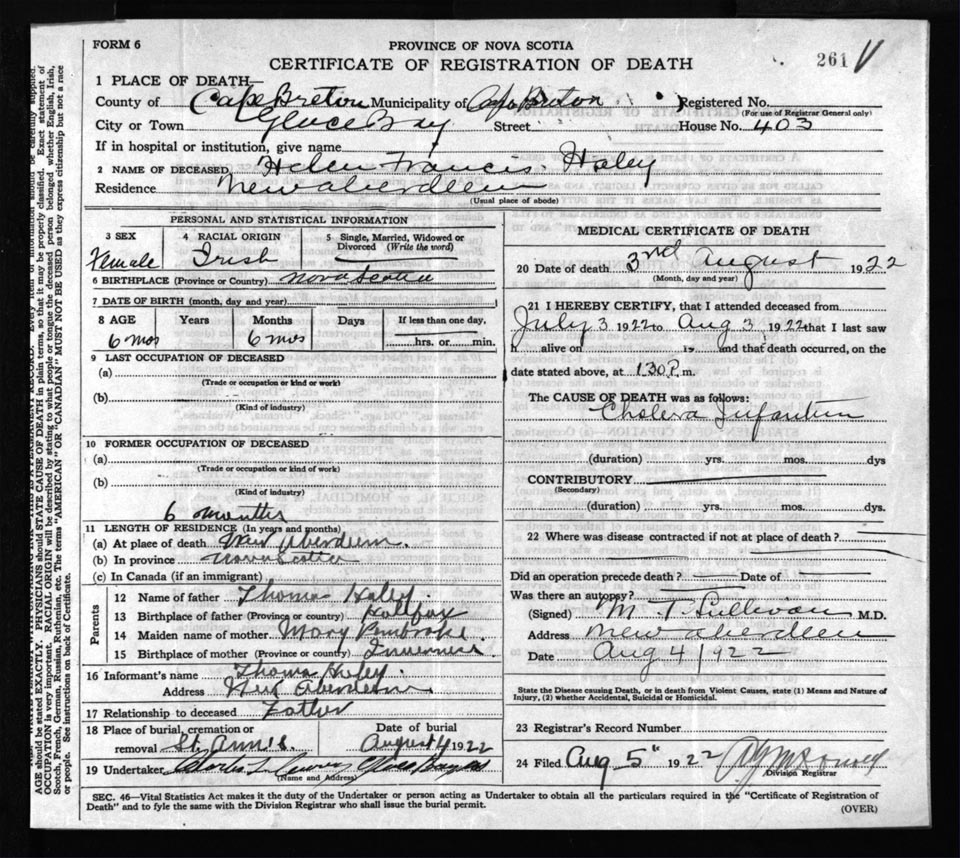 FORM 6
PROVINCE OF NOVA SCOTIA
CERTIFICATE OF REGISTRATION OF DEATH
261 V
1 PLACE OF DEATH—
County of Cape Breton Municipality of Cape Breton Registered No.
(For use of Registrar General only)
City or Town Glace Bay Street House No. 403
If in hospital or institution, give name
2 NAME OF DECEASED Helen Francis Haley
Residence New Aberdeen
(Usual place of abode)
PERSONAL AND STATISTICAL INFORMATION
3 SEX 4 RACIAL ORIGIN 5 Single, Married, Widowed or Divorced (Write the word)
Female Irish
6 BIRTHPLACE (Province or Country) Nova Scotia
7 DATE OF BIRTH (month, day and year)
8 AGE Years Months Days If less than one day,
6 mos 6 mos hrs. or min.
9 LAST OCCUPATION OF DECEASED
(a)
(Trade or occupation or kind or work)
(b)
(Kind of industry)
10 FORMER OCCUPATION OF DECEASED
(a)
(Trade or occupation or kind or work)
(b)
(Kind of industry)
6 months
11 LENGTH OF RESIDENCE (In years and months)
(a) At place of death New Aberdeen
(b) In province Nova Scotia
(c) In Canada (if an immigrant)
Parents
12 Name of father Thomas Haley
13 Birthplace of father (Province or country) Hallfax
14 Maiden name of mother Mary Pembroke
15 Birthplace of mother (Province or country) Inverness
16 Informant's name Thomas Haley
Address New Aberdeen
17 Relationship to deceased Father
18 Place of burial, cremation or removal St. Ann's. Date of burial August 4 1922
19 Undertaker Glace Bay
(Name and Address)
MEDICAL CERTIFICATE OF DEATH
20 Date of death 3rd August 1922
(Month, day and year)
21 I HEREBY CERTIFY, that I attended deceased from
July 3 1922 to Aug 3 1922 that I last saw
h alive on is and that death occurred, on the
date stated above, at 1.30 P. m.
The CAUSE OF DEATH was as follows:
Cholera Infantum
(duration) yrs. mos. dys
CONTRIBUTORY
(Secondary)
(duration) yrs. mos. dys
22 Where was disease contracted if not at place of death?
Did an operation precede death? Date of
Was there an autopsy?
(Signed) M. T. Sullivan M.D.
Address New Aberdeen
Date Aug 4/1922
State the Disease causing Death, or in death from Violent Causes, state (1) Means and Nature of
Injury, (2) whether Accidental, Suicidal or Homicidal.
23 Registrar's Record Number
24 Filed Aug 5" 1922
Division Registrar
SEC. 46—Vital Statistics Act makes it the duty of the Undertaker or person acting as Undertaker to obtain all the particulars required in the "Certificate of Registration of
Death" and to fyle the same with the Division Registrar who shall issue the burial permit.
(OVER)
AGE should be stated EXACTLY. PHYSICIANS should STATE CAUSE OF DEATH in plain terms, so that it may be properly classified. Exact statement of
OCCUPATION is very important. RACIAL ORIGIN will be described by stating to what people or tongue the deceased person belonged whether English, Irish,
Scotch, French, German, Russian, Ruthenian, etc. The terms "AMERICAN" OR "CANADIAN" MUST NOT BE USED as they express citizenship but not a race
or people. See instructions on back of Certificate.